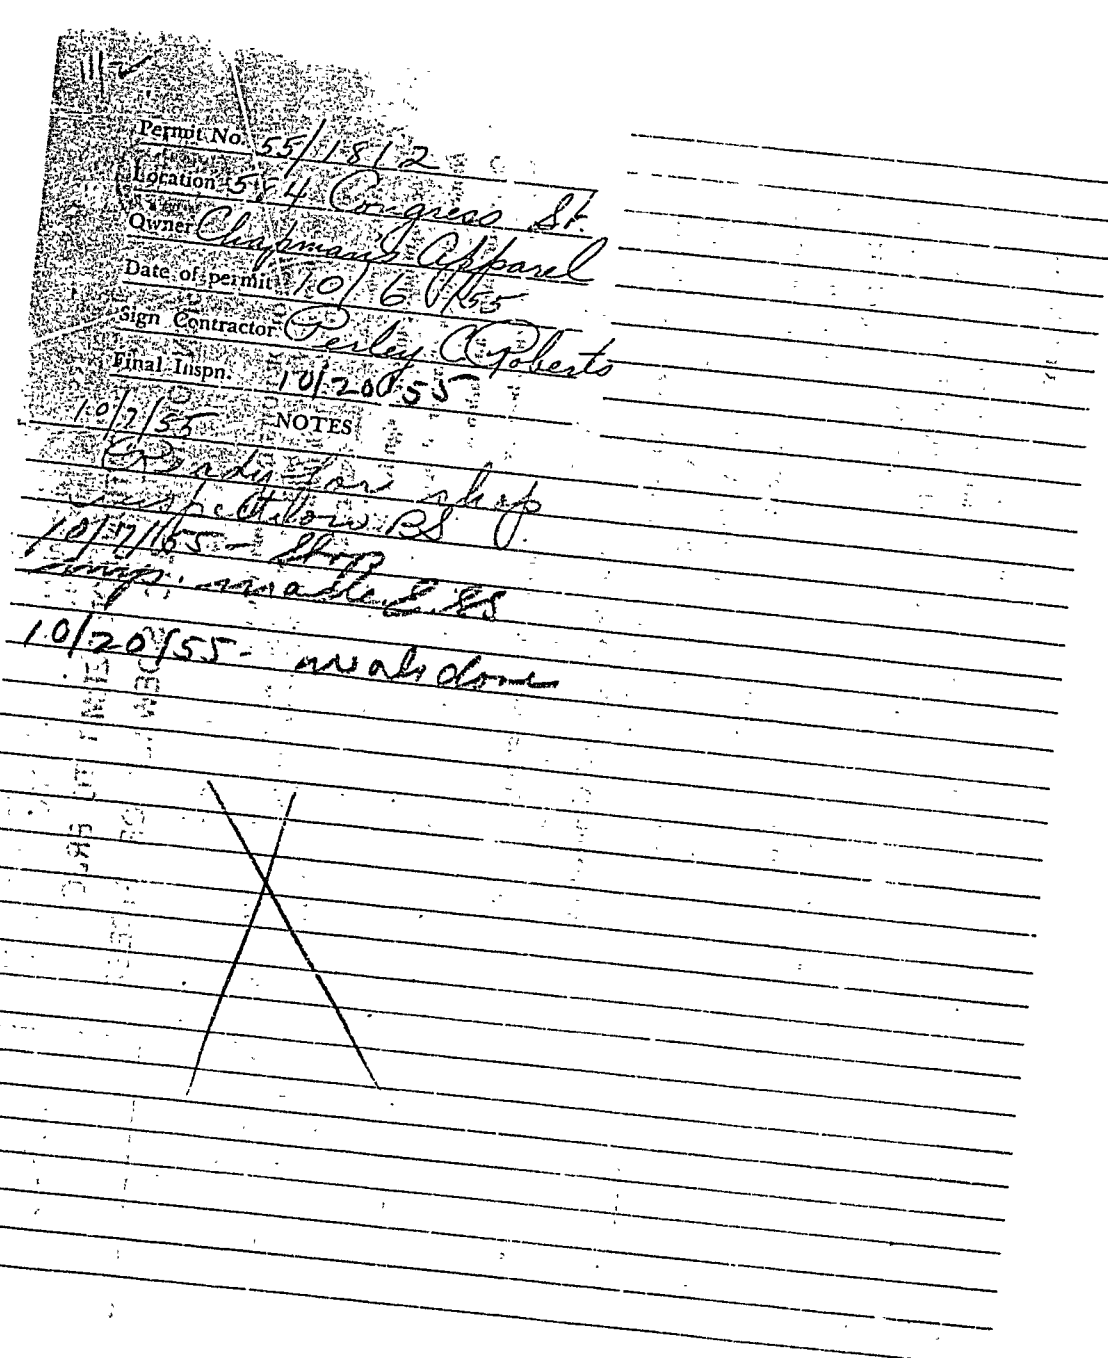 Permit No. 55/1812
Location Congress St.
Owner Chapman's Apparel
Date of permit 10/6/55
Sign Contractor Perley C Roberts
Final Inspn. 10/20/55
10/7/55 NOTES
Ready for shop
inspection BS
10/7/55 - Shop
insp. made
10/20/55 - done